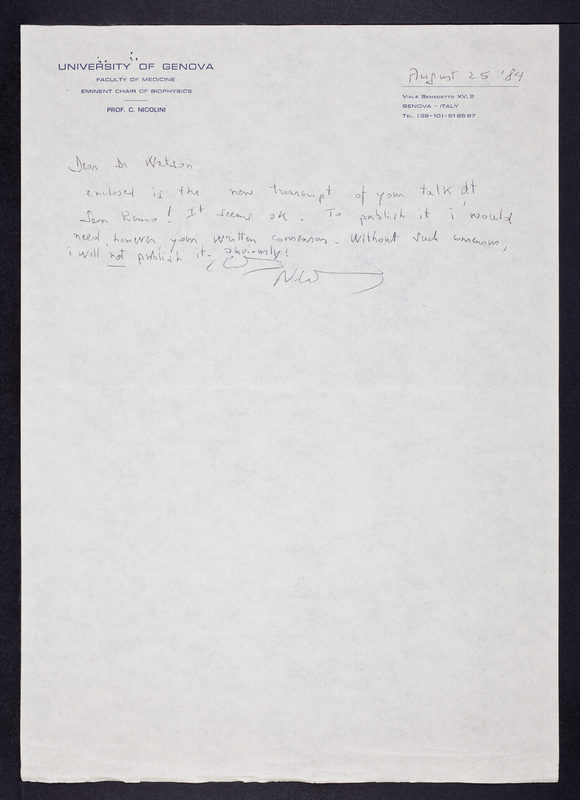 UNIVERSITY OF GENOVA
FACULTY OF MEDICINE
EMINENT CHAIR OF BIOPHYSICS
PROF. C. NICOLINI
August 25 '84
VIALE BENEDETTO XV, 2
GENOVA - ITALY
TEL. (39-10)-518587
Dear Dr Watson,
enclosed is the new transcript of your talk at
San Remo! It seems ok. To publish it i would
need, however, your written consensus. Without such consensus,
i will not publish it, obviously!